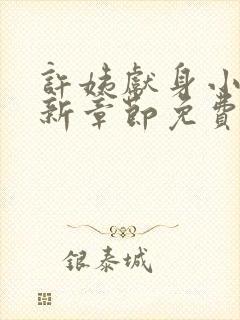 許姊獻身小
新章節免費
銀泰城